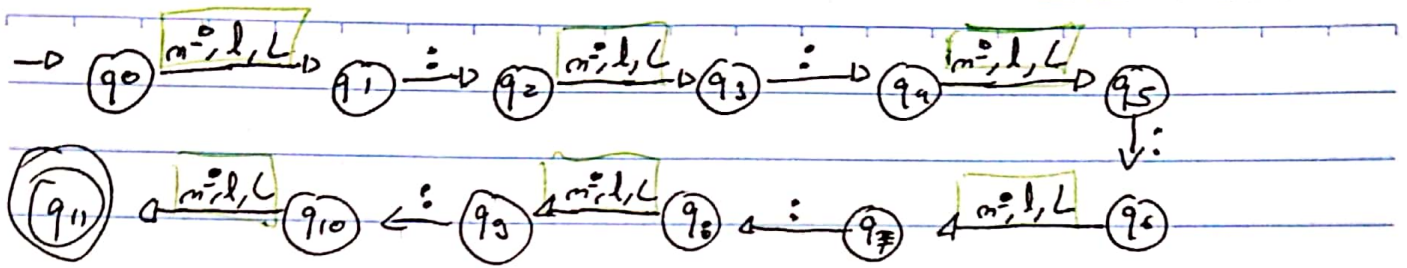 q0 nº, l, L q1 : q2 nº, l, L q3 : q4 nº, l, L q5
:
q11 nº, l, L q10 : q9 nº, l, L q8 : q7 nº, l, L q6